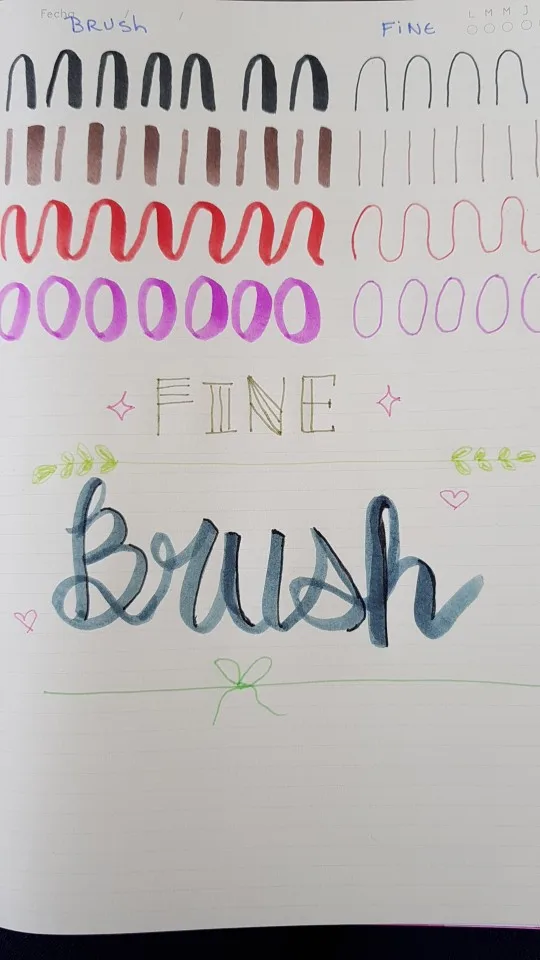 Fecha / /
L M M J
BRUSH FiNE
FINE
Brush